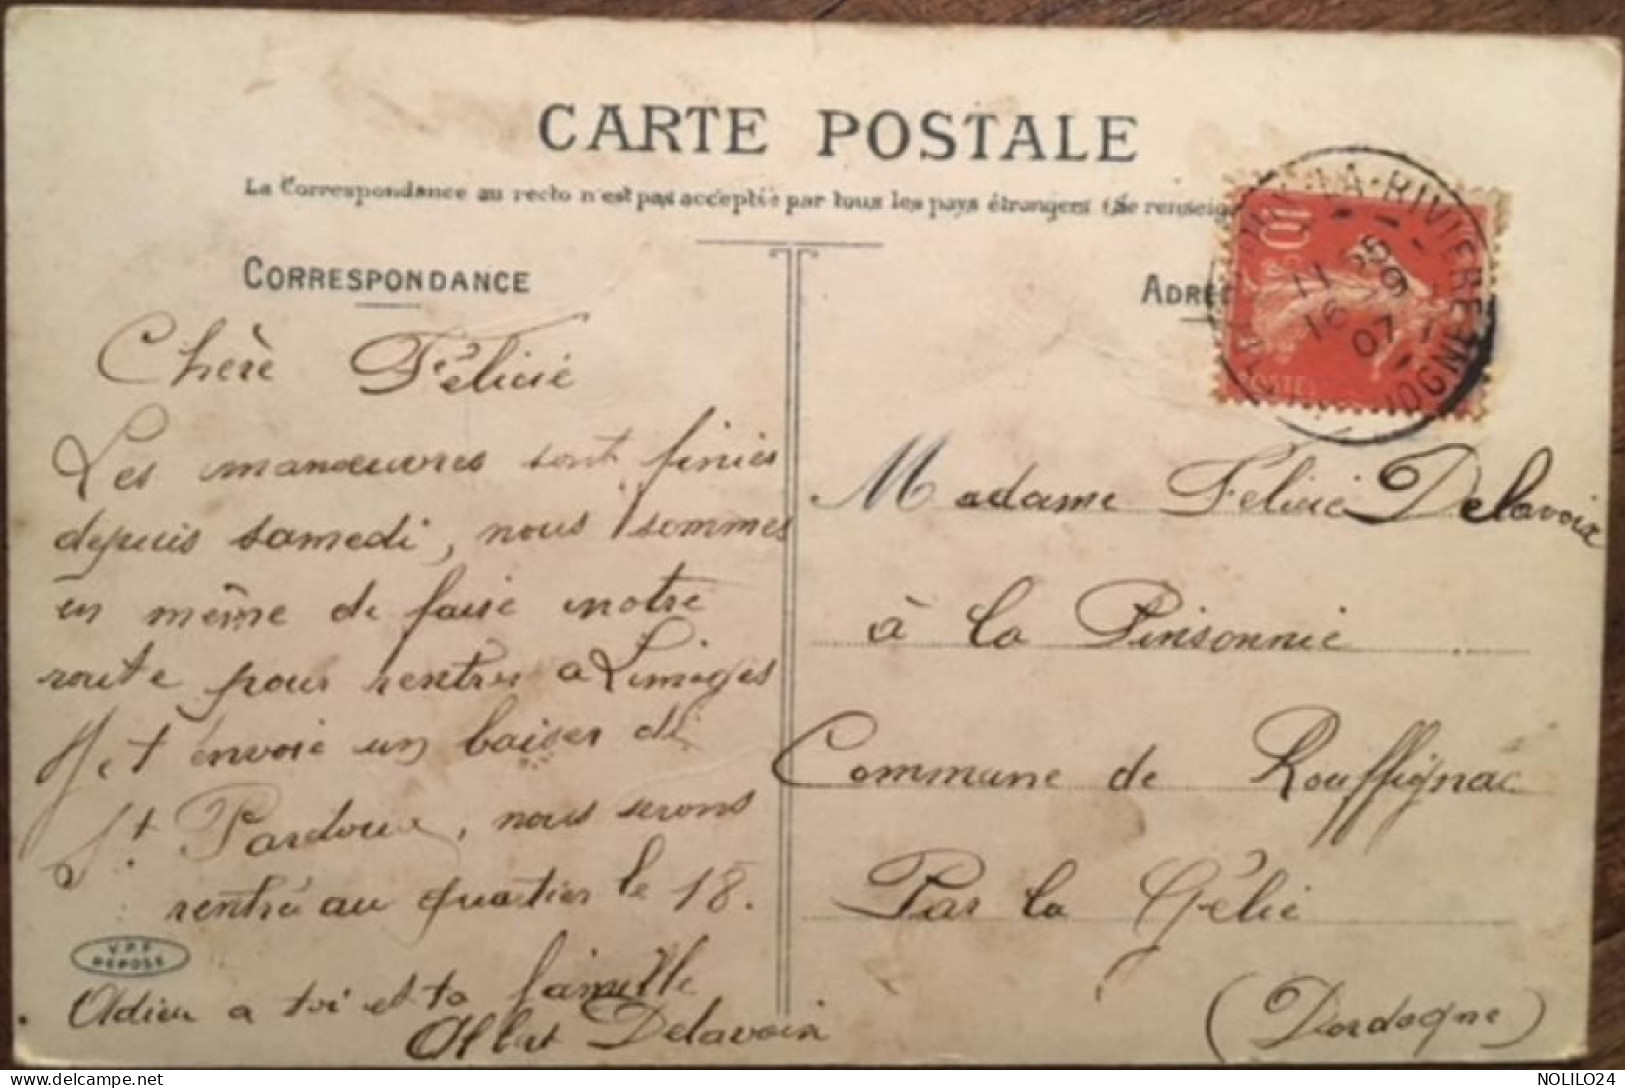 CARTE POSTALE
La Correspondance au recto n'est pas acceptée par tous les pays étrangers (Se renseig
CORRESPONDANCE
Chère Félicie
Les manœuvres sont finies
depuis samedi, nous sommes
en même de faire notre
route pour rentrer a Limoges
J et envoie un baiser de
St Pardoux, nous serons
rentré au quartier le 18.
V.P.F.
DEPOSE
Adieu a toi et ta famille
Albert Delavoix
ADRE
10
LA-RIVIERE
11 35
16 - 9
07
DOGNE
Madame Félicie Delavoix
à la Pinsonnie
Commune de Rouffignac
Par la Gélie
(Dordogne)
NOLILO24